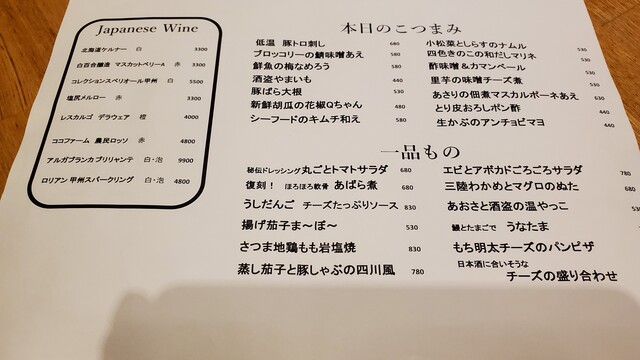 Japanese Wine
北海道ケルナー 白 3300
白百合醸造 マスカットベリーA 赤 3300
コレクションスペリオール甲州 白 5500
塩尻メルロー 赤 3300
レスカルゴ デラウェア 橙 4000
ココファーム 農民ロッソ 赤 4800
アルガブランカブリリャンテ 白・泡 9900
ロリアン 甲州スパークリング 白・泡 4800
本日のこつまみ
低温 豚トロ刺し 680
ブロッコリーの鯖味噌あえ 580
鮮魚の梅なめろう 580
酒盗やまいも 440
豚ばら大根 530
新鮮胡瓜の花椒Qちゃん 480
シーフードのキムチ和え 580
小松菜としらすのナムル 530
四色きのこの和だしマリネ 530
酢味噌&カマンベール 530
里芋の味噌チーズ煮 530
あさりの佃煮マスカルポーネあえ 630
とり皮おろしポン酢 440
生かぶのアンチョビマヨ 440
一品もの
秘伝ドレッシング 丸ごとトマトサラダ 680
復刻! ほろほろ軟骨 あばら煮 680
うしだんご チーズたっぷりソース 830
揚げ茄子ま〜ぼ〜 530
さつま地鶏もも岩塩焼 830
蒸し茄子と豚しゃぶの四川風 780
エビとアボカドごろごろサラダ 780
三陸わかめとマグロのぬた 680
あおさと酒盗の温やっこ
鰻とたまごで うなたま
もち明太チーズのパンピザ
日本酒に合いそうな
チーズの盛り合わせ